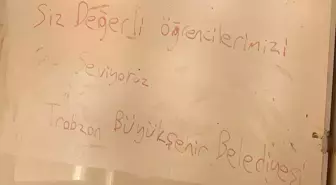 Siz Değerli öğrencilerimizi
Seviyoruz
Trabzon Büyükşehir Belediyesi